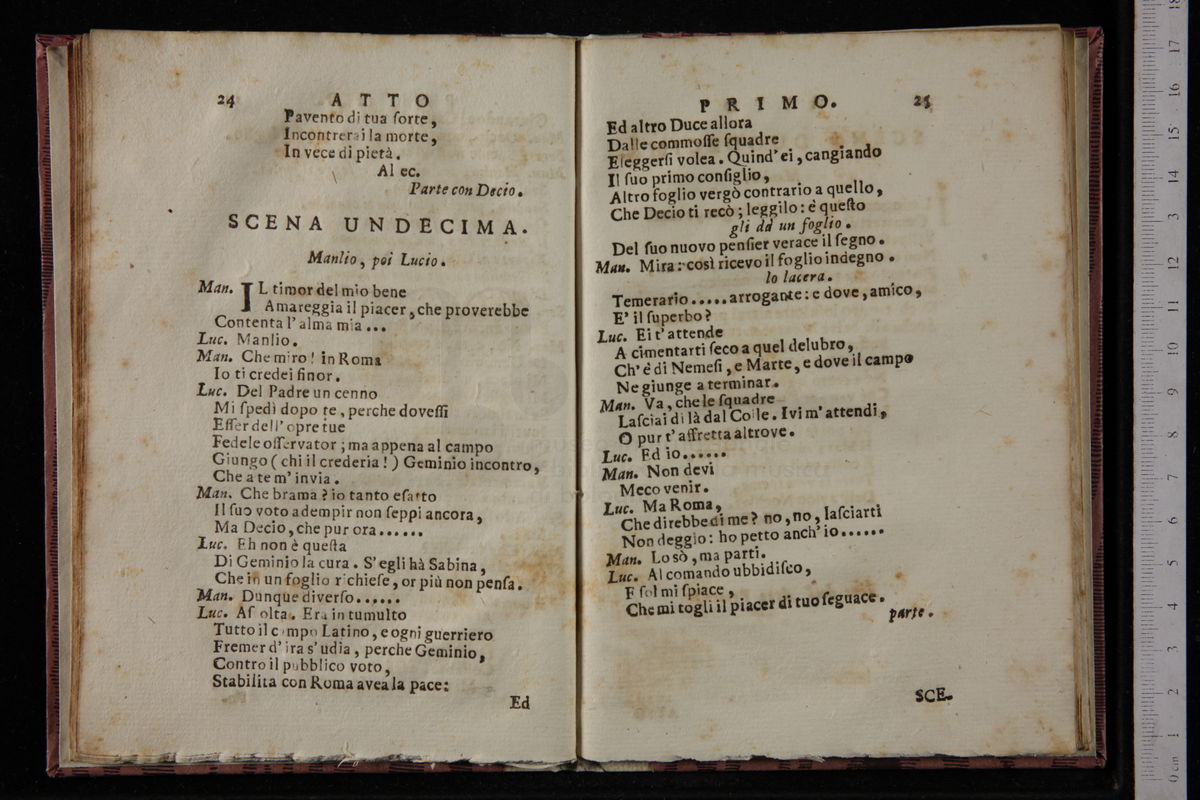 24 ATTO
Pavento di tua ſorte,
Incontrerai la morte,
In vece di pietà.
Al ec.
Parte con Decio.
SCENA UNDECIMA.
Manlio, poi Lucio.
Man. IL timor del mio bene
Amareggia il piacer, che proverebbe
Contenta l' alma mia ...
Luc. Manlio.
Man. Che miro! in Roma
Io ti credei finor.
Luc. Del Padre un cenno
Mi ſpedì dopo te, perche doveſſi
Eſſer dell' opre tue
Fedele oſſervator; ma appena al campo
Giungo (chi il crederia!) Geminio incontro,
Che a te m' invia.
Man. Che brama? io tanto eſatto
Il ſuo voto adempir non ſeppi ancora,
Ma Decio, che pur ora......
Luc. Eh non è queſta
Di Geminio la cura. S' egli hà Sabina,
Che in un foglio richieſe, or più non penſa.
Man. Dunque diverſo......
Luc. Aſcolta. Era in tumulto
Tutto il campo Latino, e ogni guerriero
Fremer d' ira s' udia, perche Geminio,
Contro il pubblico voto,
Stabilita con Roma avea la pace:
Ed
PRIMO. 25
Ed altro Duce allora
Dalle commoſſe ſquadre
Eleggerſi volea. Quind' ei, cangiando
Il ſuo primo conſiglio,
Altro foglio vergò contrario a quello,
Che Decio ti recò; leggilo: è queſto
gli dà un foglio.
Del ſuo nuovo penſier verace il ſegno.
Man. Mira: così ricevo il foglio indegno.
lo lacera.
Temerario.....arrogante: e dove, amico,
E' il ſuperbo?
Luc. Ei t' attende
A cimentarti ſeco a quel delubro,
Ch' è di Nemeſi, e Marte, e dove il campo
Ne giunge a terminar.
Man. Va, che le ſquadre
Laſciai di là dal Colle. Ivi m' attendi,
O pur t' affretta altrove.
Luc. Ed io......
Man. Non devi
Meco venir.
Luc. Ma Roma,
Che direbbe di me? no, no, laſciarti
Non deggio: ho petto anch' io......
Man. Lo sò, ma parti.
Luc. Al comando ubbidiſco,
E ſol mi ſpiace,
Che mi togli il piacer di tuo ſeguace.
parte.
SCE-